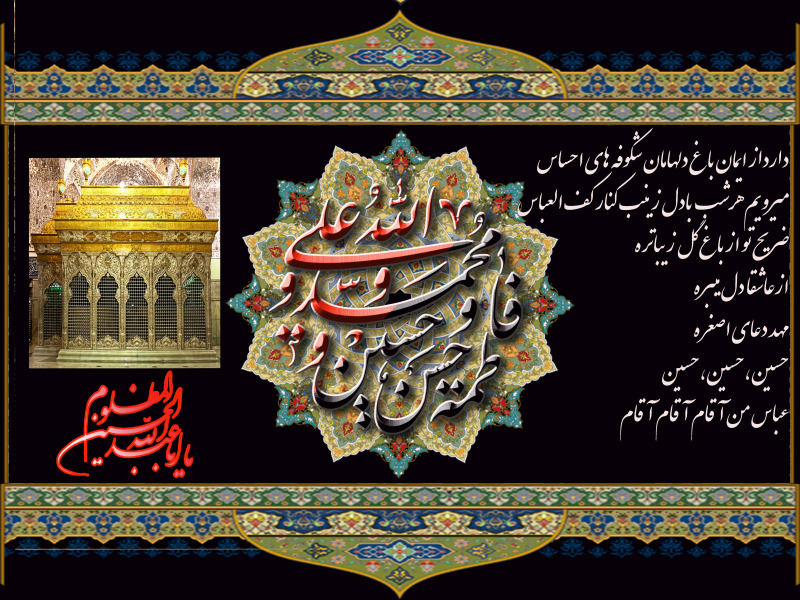 دارد از ایمان باغ دلهامان شکوفه های احساس
میرویم هر شب با دل زینب کنار کف العباس
ضریح تو از باغ گل زیباتره
از عاشقا دل میبره
مهد دعای اصغره
حسین، حسین، حسین
عباس من آقام آقام آقام
الله
علی
و
محمد
و
فاطمه
و
حسن
و
حسین
یا ابا عبدالله الحسین المظلوم